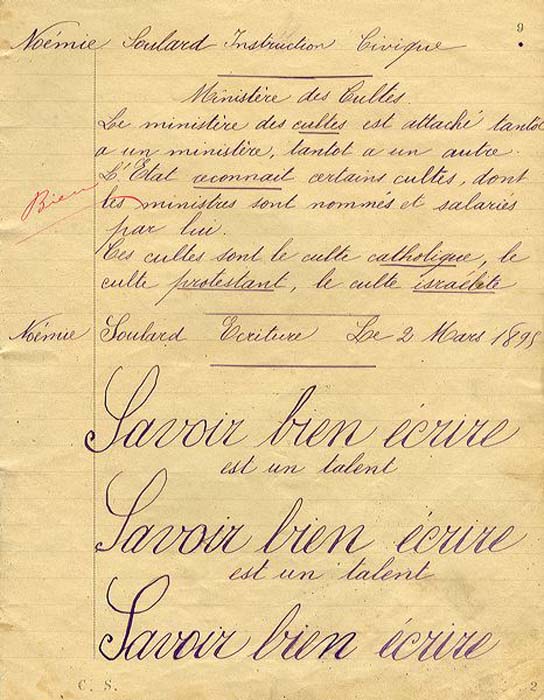 9
Noémie Soulard Instruction Civique
Ministère des Cultes.
Le ministère des cultes est attaché tantôt
a un ministère, tantot a un autre.
L'Etat reconnait certains cultes, dont
Bien
les ministres sont nommés et salariés
par lui.
Ces cultes sont le culte catholique, le
culte protestant, le culte israélite
Noémie Soulard Ecriture Le 2 Mars 1895
Savoir bien écrire
est un talent
Savoir bien écrire
est un talent
Savoir bien écrire
C. S. 2